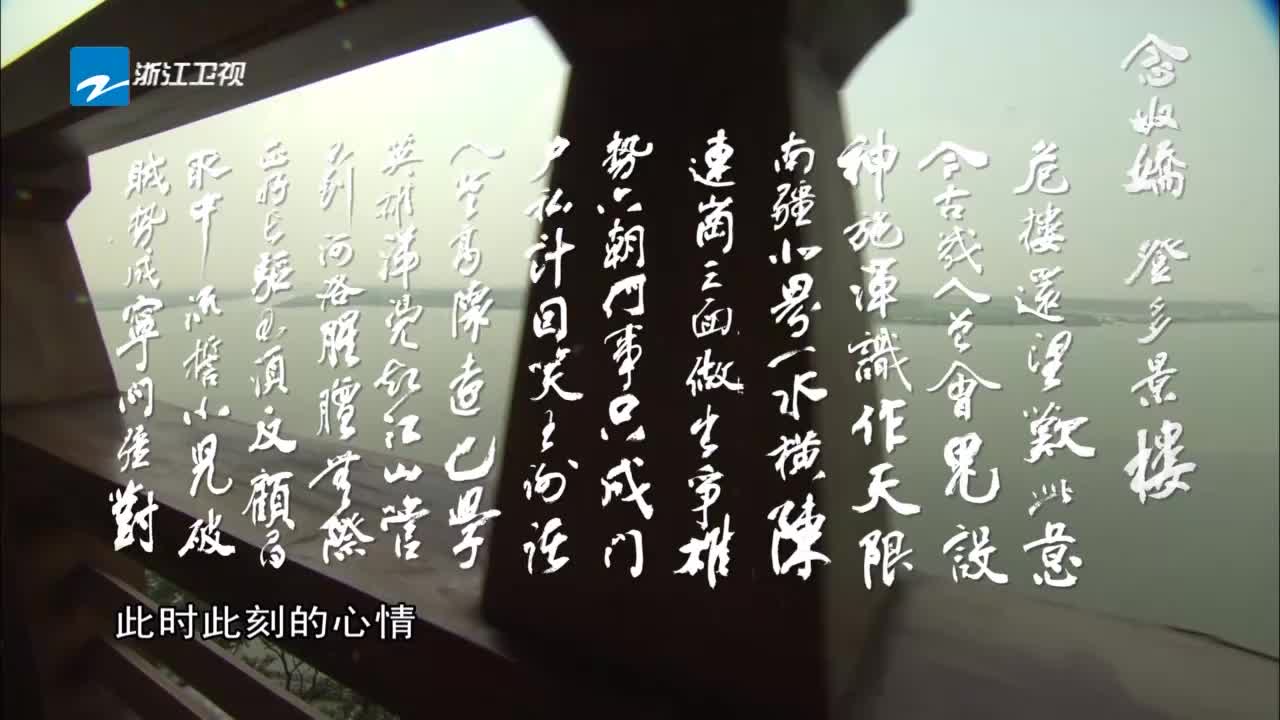 浙江卫视
念奴嬌 登多景樓
危樓還望歎此意
今古幾人曾會鬼設
神施渾識作天限
南疆北界一水横陳
連崗三面做出争雄
勢六朝何事只成门
户私計因笑王謝諸
人登高懷遠也學
英雄涕憑却江山管
不到河洛腥膻無際
正好長驅不須反顧尋
取中流誓小兒破
賊勢成寧問強對
此时此刻的心情